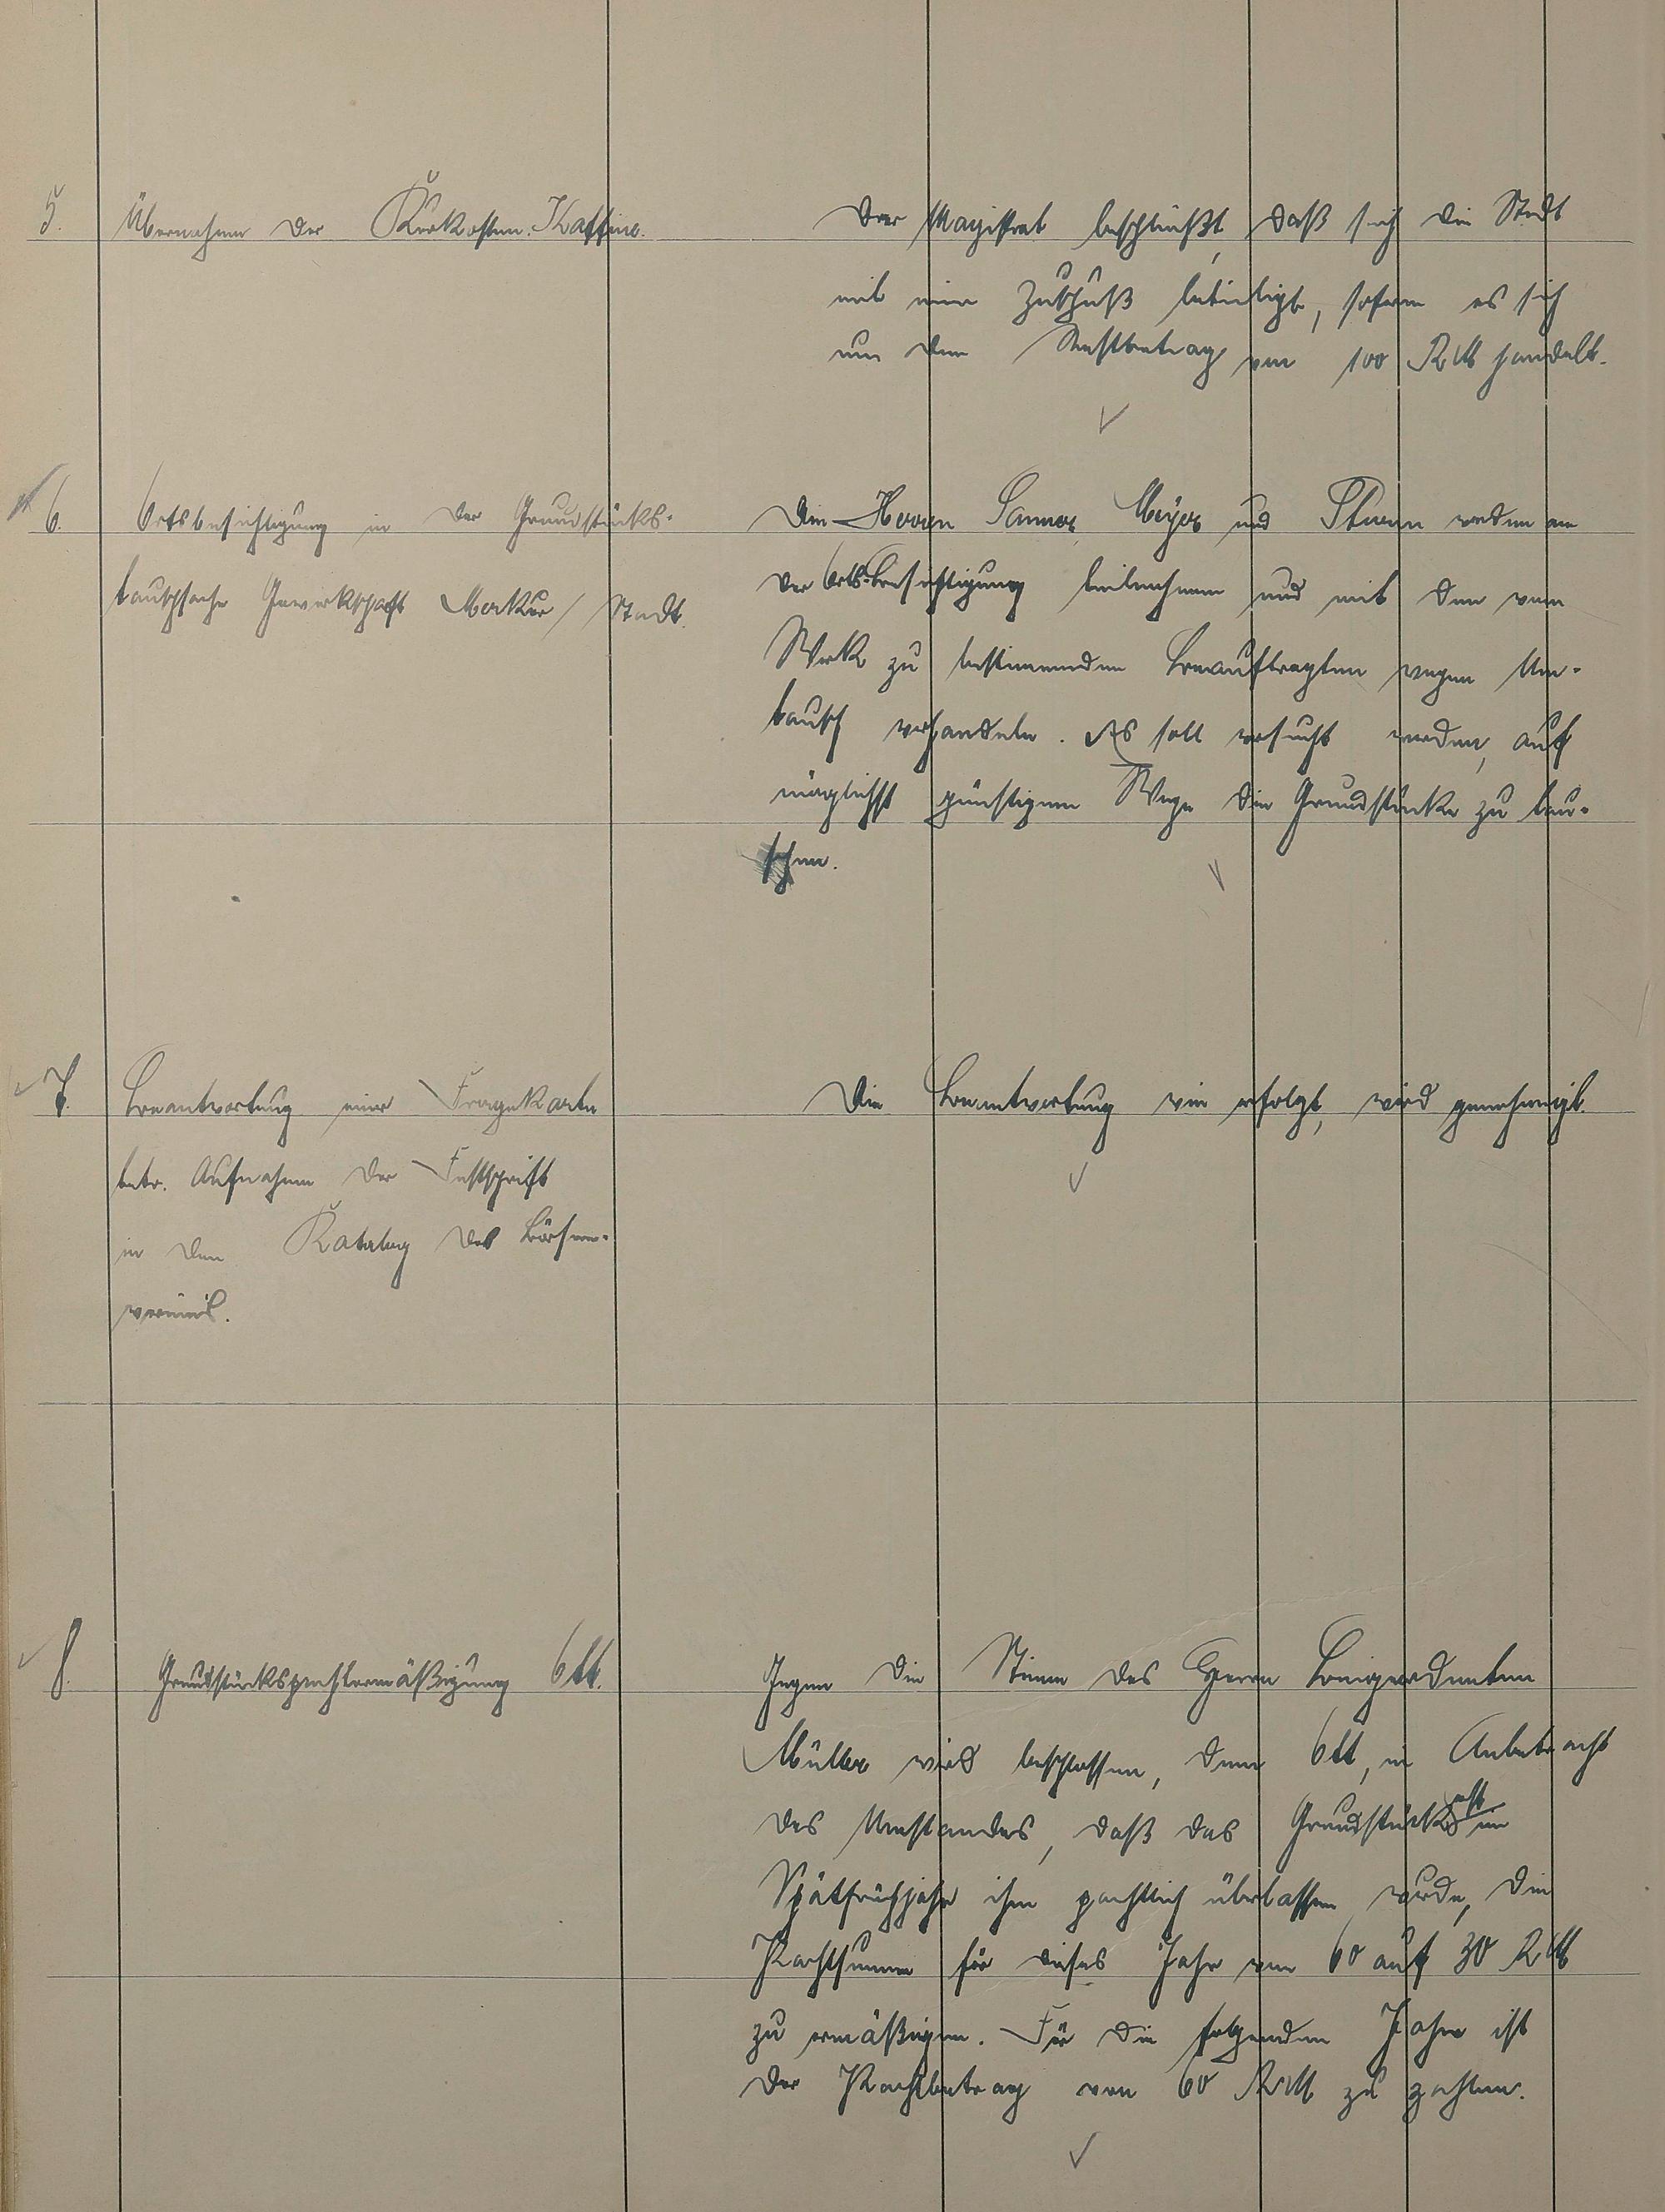 5. Übernahme der Kurkosten Kaffine.
Der Magistrat beschließt, daß sich die Stadt
mit einem Zuschuß beteiligt, sofern es sich
um den Restbetrag von 100 RM handelt.
6. Ortsbesichtigung in der Grundstücks-
tauschsache Gewerkschaft Merkur / Stadt.
Die Herren Sanner, Meyer und Sturm werden an
der Orts-Besichtigung teilnehmen und mit den vom
Werk zu bestimmenden Beauftragten wegen Um-
tausch verhandeln. Es soll versucht werden, auf
möglichst günstigem Wege die Grundstücke zu tau-
schen.
7. Beantwortung einer Fragekarte
betr. Aufnahme der Festschrift
in den Katalog des Börsen-
vereins.
Die Beantwortung wie erfolgt, wird genehmigt.
8. Grundstückspachtermäßigung Ott.
Gegen die Stimme des Herrn Beigeordneten
Müller wird beschlossen, dem Ott, in Anbetracht
des Umstandes, daß das Grundstück erst im
Spätfrühjahr ihm pachtlich überlassen wurde, die
Pachtsumme für dieses Jahr von 60 auf 30 RM
zu ermäßigen. Für die folgenden Jahre ist
der Pachtbetrag von 60 RM zu zahlen.